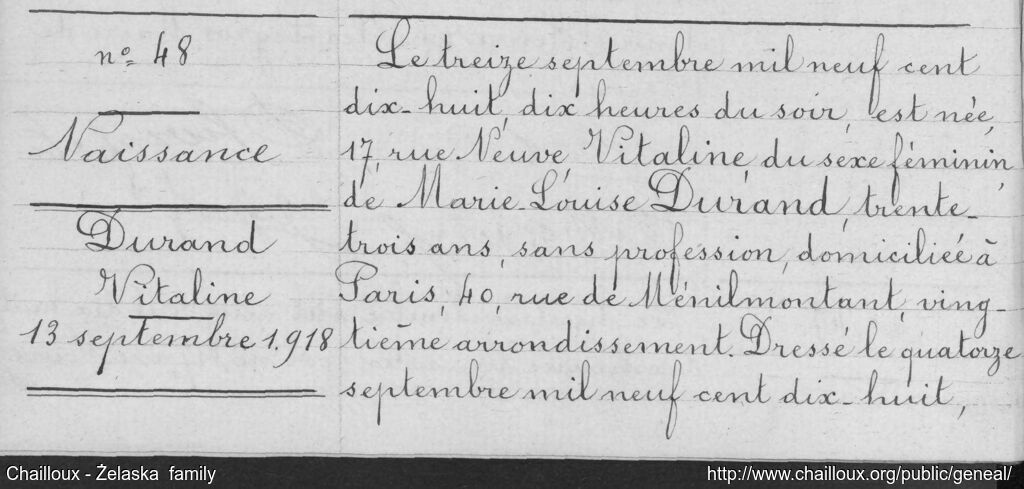 nº 48
Naissance
Durand
Vitaline
13 septembre 1.918
Le treize septembre mil neuf cent
dix-huit, dix heures du soir, est née,
17, rue Neuve, Vitaline, du sexe féminin,
de Marie-Louise Durand, trente-
trois ans, sans profession, domiciliée à
Paris, 40, rue de Ménilmontant, ving-
tième arrondissement. Dressé le quatorze
septembre mil neuf cent dix-huit,
Chailloux - Želaska family
http://www.chailloux.org/public/geneal/